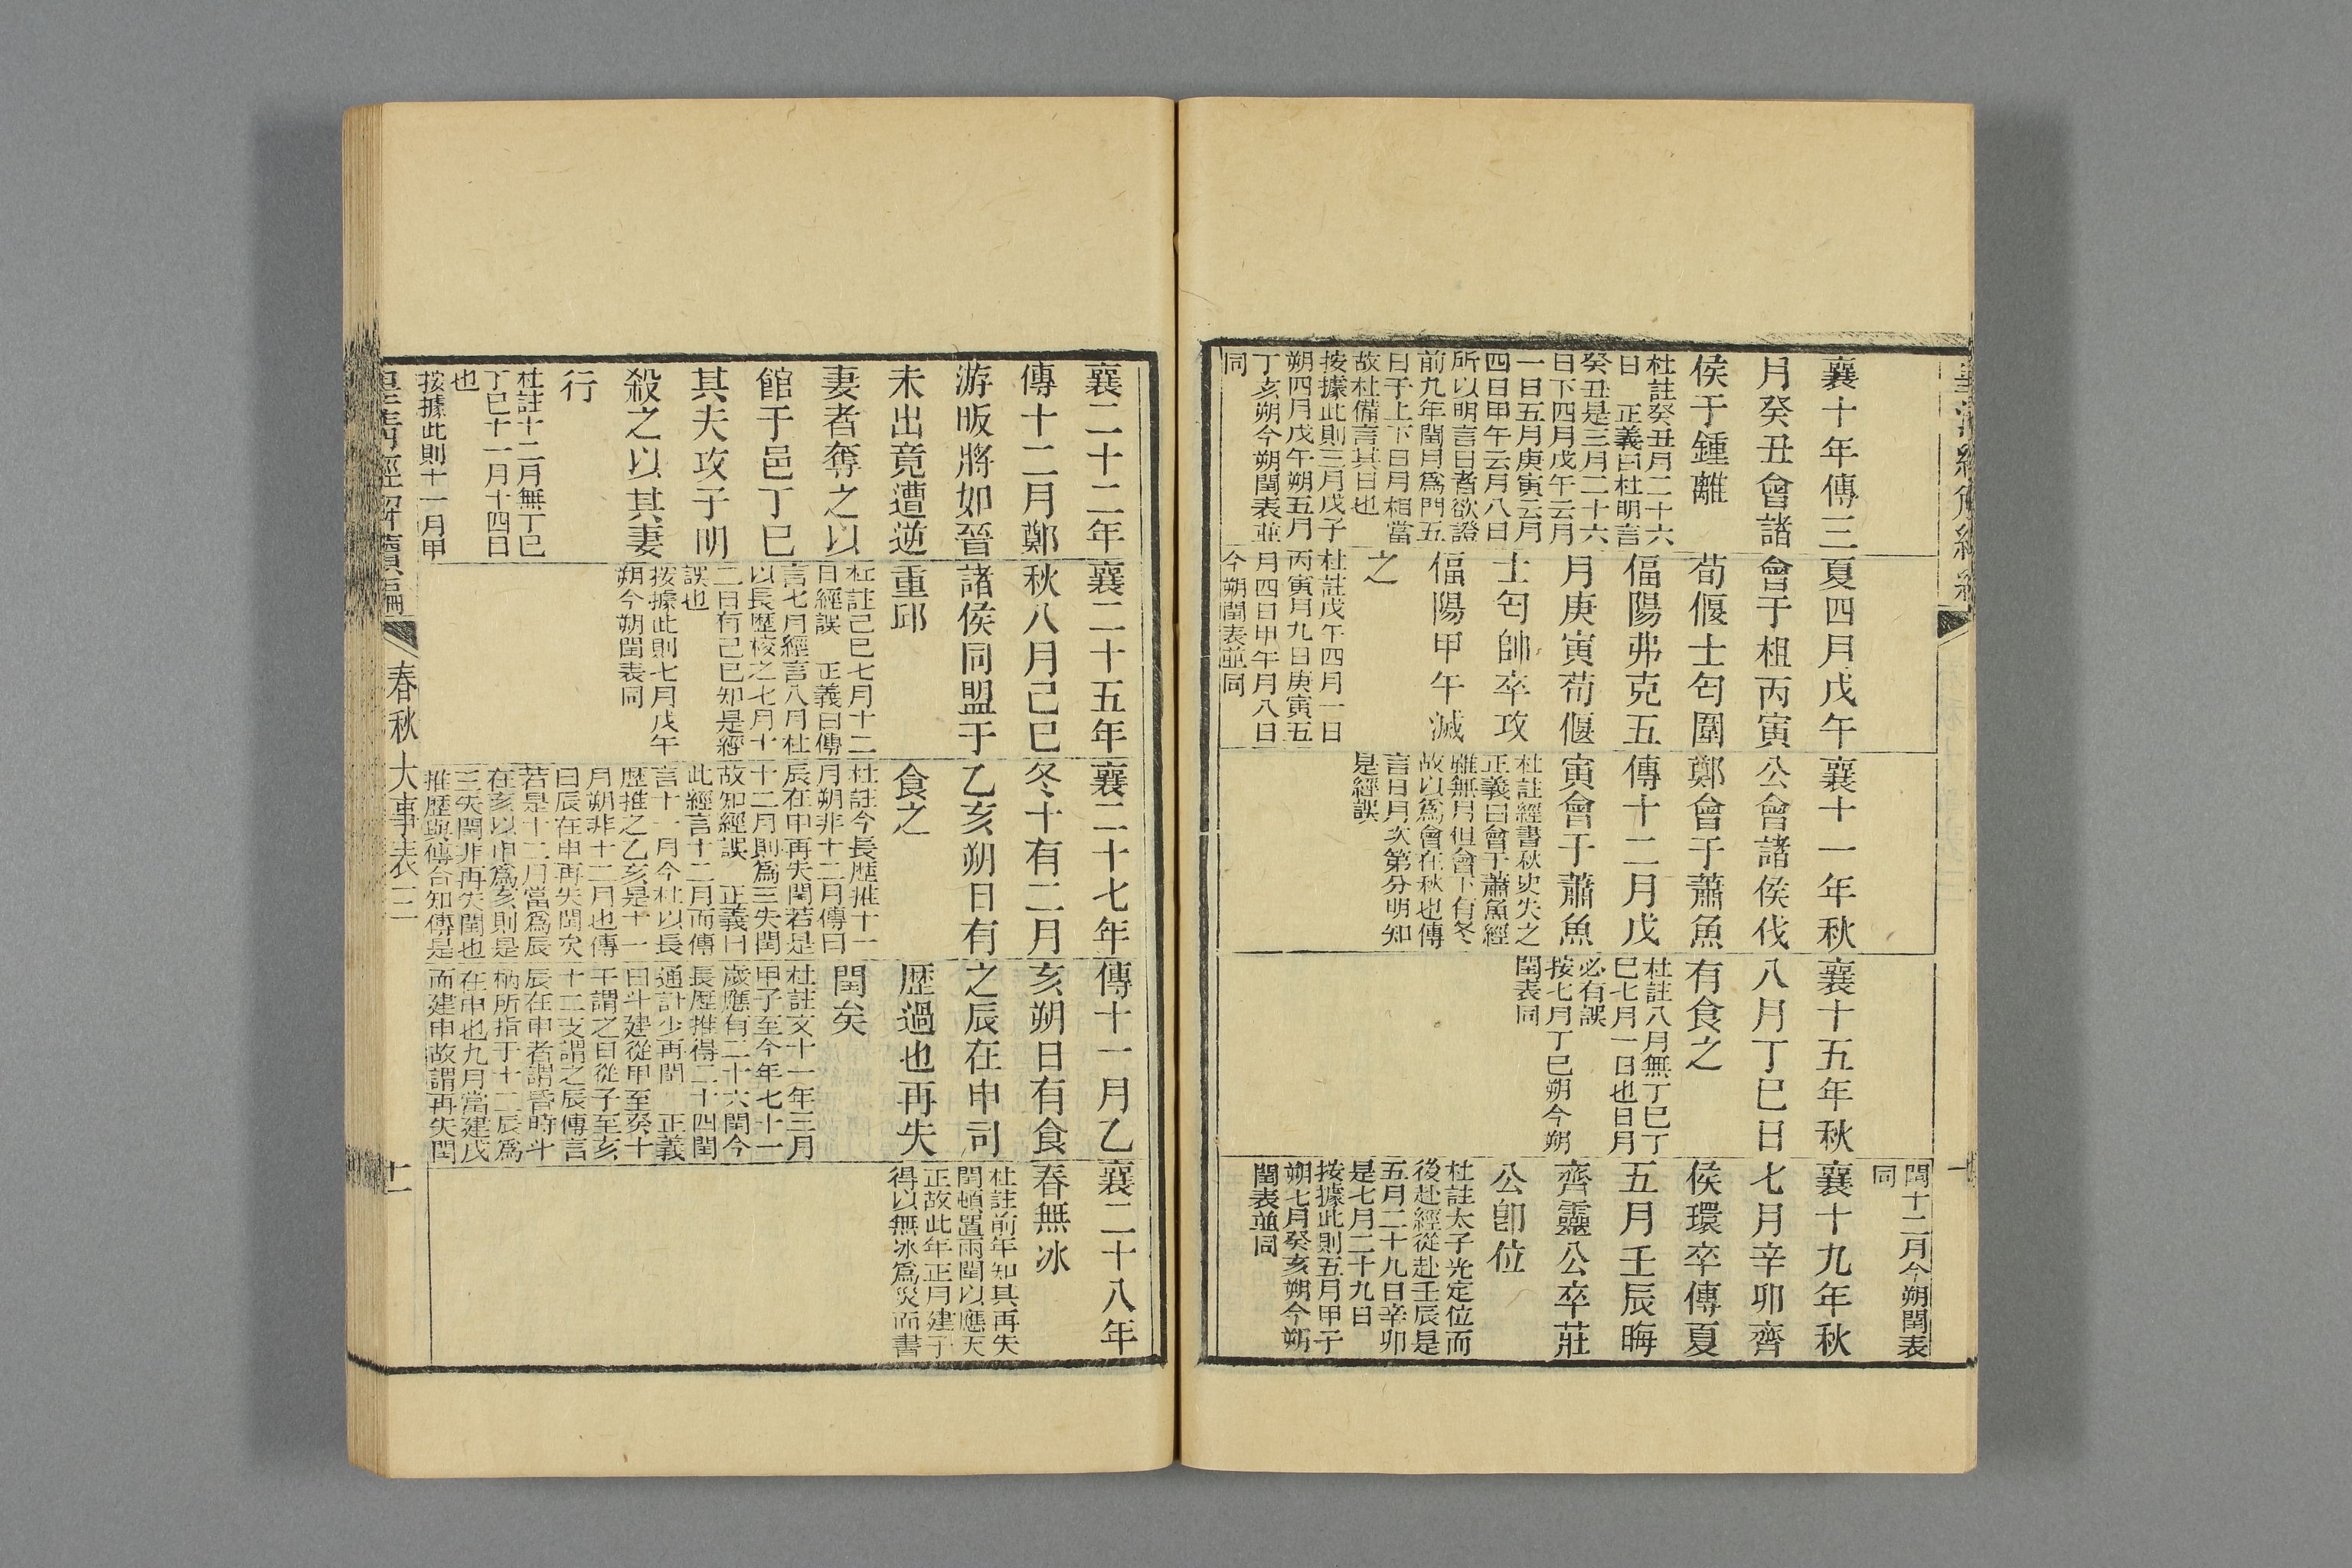 皇清經解續編
十
襄十年傳三
月癸丑會諸
侯于鍾離
杜註癸丑月二十六
日　正義曰杜明言
癸丑是三月二十六
日下四月戊午云月
一日五月庚寅云月
四日甲午云月八日
所以明言日者欲證
前九年閏月爲門五
日于上下日月相當
故杜備言其日也
按據此則三月戊子
朔四月戊午朔五月
丁亥朔今朔閏表並
同
夏四月戊午
會于柤丙寅
荀偃士匄圍
偪陽弗克五
月庚寅荀偃
士匄帥卒攻
偪陽甲午滅
之
杜註戊午四月一日
丙寅月九日庚寅五
月四日甲午月八日
今朔閏表並同
襄十一年秋
公會諸侯伐
鄭會于蕭魚
傳十二月戊
寅會于蕭魚
杜註經書秋史失之
正義曰會于蕭魚經
雖無月但會下有冬
故以爲會在秋也傳
言日月次第分明知
是經誤
襄十五年秋
八月丁巳日
有食之
杜註八月無丁巳丁
巳七月一日也日月
必有誤
按七月丁巳朔今朔
閏表同
閏十二月今朔閏表
同
襄十九年秋
七月辛卯齊
侯環卒傳夏
五月壬辰晦
齊靈公卒莊
公卽位
杜註太子光定位而
後赴經從赴壬辰是
五月二十九日辛卯
是七月二十九日
按據此則五月甲子
朔七月癸亥朔今朔
閏表並同
襄二十二年
傳十二月鄭
游販將如晉
未出竟遭逆
妻者奪之以
館于邑丁巳
其夫攻子明
殺之以其妻
行
杜註十二月無丁巳
丁巳十一月十四日
也
按據此則十一月甲
襄二十五年
秋八月己巳
諸侯同盟于
重邱
杜註己巳七月十二
日經誤　正義曰傳
言七月經言八月杜
以長歷校之七月十
二日有己巳知是經
誤也
按據此則七月戊午
朔今朔閏表同
襄二十七年
冬十有二月
乙亥朔日有
食之
杜註今長歷推十一
月朔非十二月傳曰
辰在申再失閏若是
十二月則爲三失閏
故知經誤　正義曰
此經言十二月而傳
言十一月今杜以長
歷推之乙亥是十一
月朔非十二月也傳
曰辰在申再失閏矣
若是十二月當爲辰
在亥以申爲亥則是
三失閏非再失閏也
推歷與傳合知傳是
傳十一月乙
亥朔日有食
之辰在申司
歷過也再失
閏矣
杜註文十一年三月
甲子至今年七十一
歲應有二十六閏今
長歷推得二十四閏
通計少再閏　正義
曰斗建從甲至癸十
干謂之日從子至亥
十二支謂之辰傳言
辰在申者謂昏時斗
柄所指于十二辰爲
在申也九月當建戌
而建申故謂再失閏
襄二十八年
春無冰
杜註前年知其再失
閏頓置兩閏以應天
正故此年正月建子
得以無冰爲災而書
皇清經解續編
春秋大事表二
十一